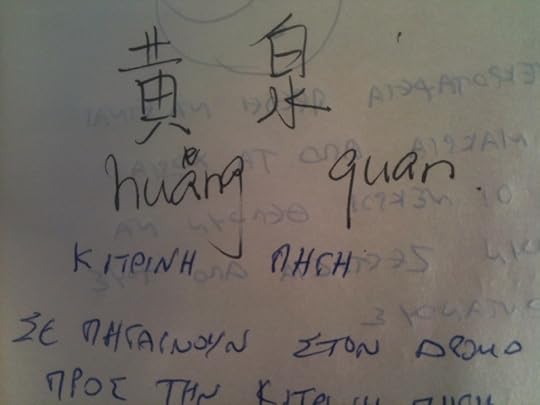 黄 泉
huang quan.
ΚΙΤΡΙΝΗ ΠΗΓΗ
ΣΕ ΠΗΓΑΙΝΟΥΝ ΣΤΟΝ ΔΡΟΜΟ
ΠΡΟΣ ΤΗΝ ΚΙΤΡΙΝΗ ΠΗΓΗ